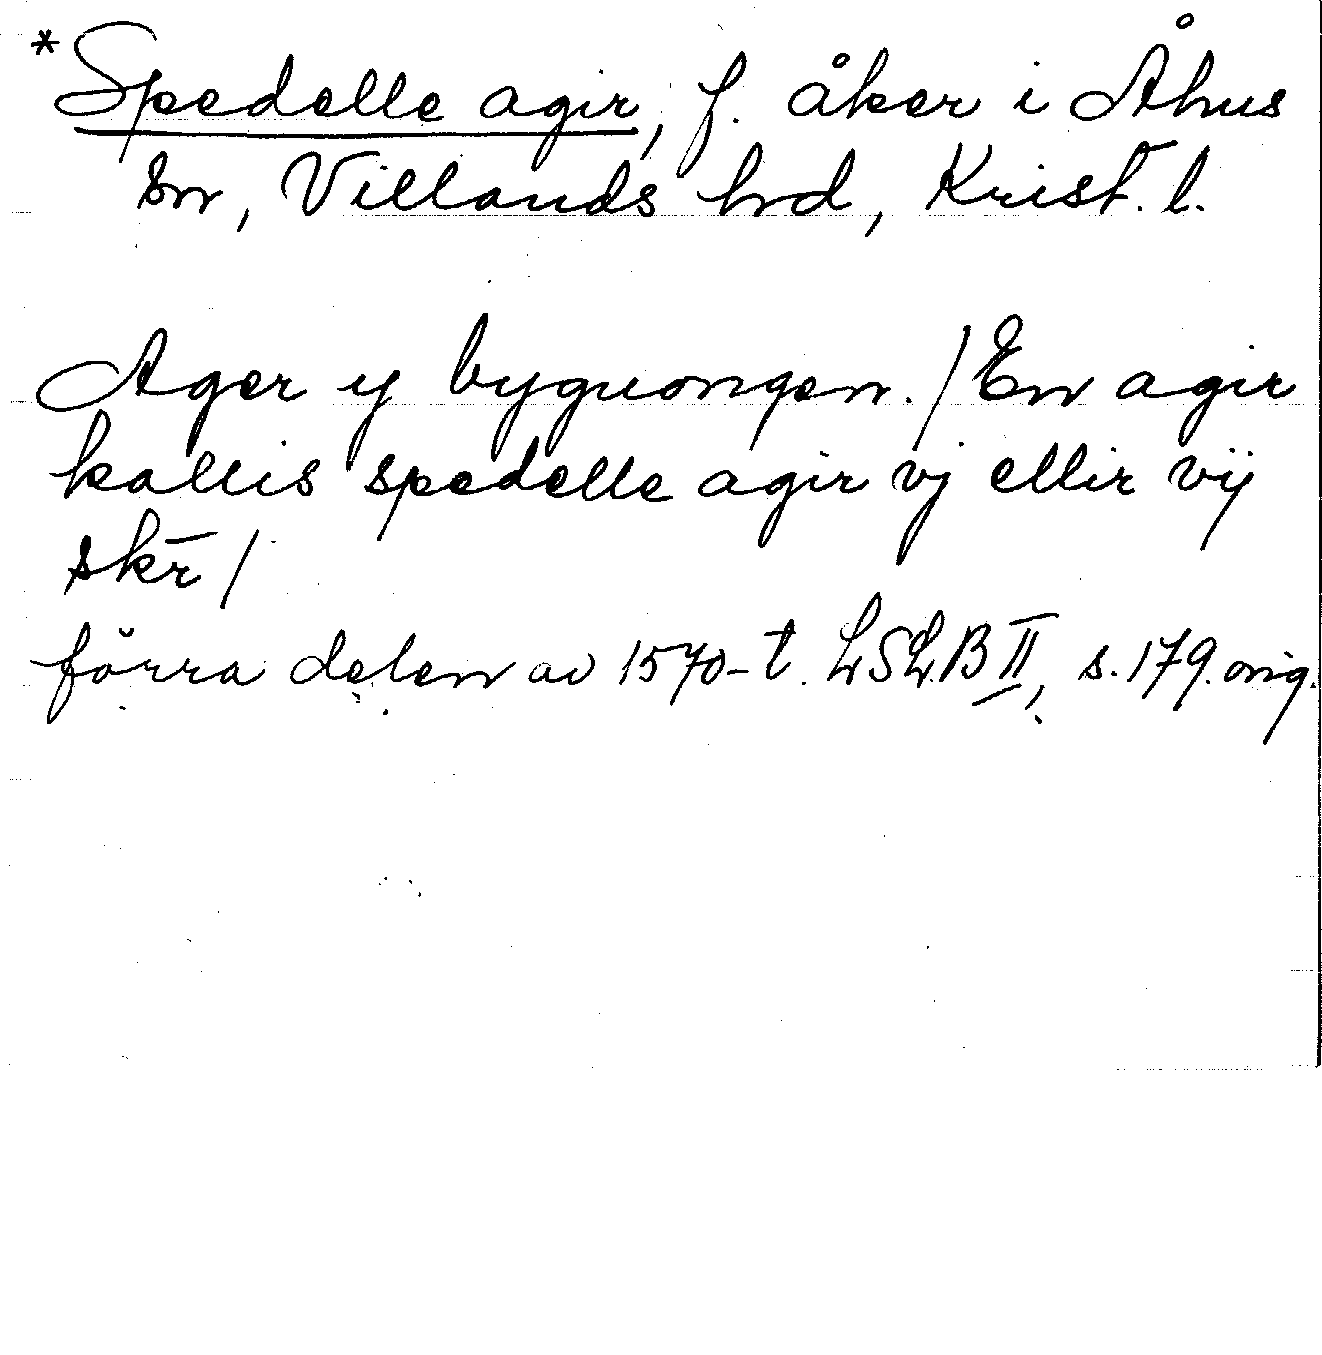 *Spedelle agir, f. åker i Åhus
sn, Villands hrd, Krist. l.
Ager y byguongen. / En agir
kallis spedelle agir vj ellir vij
skr̄ /
förra delen av 1570-t. LSLB II, s. 179. orig.